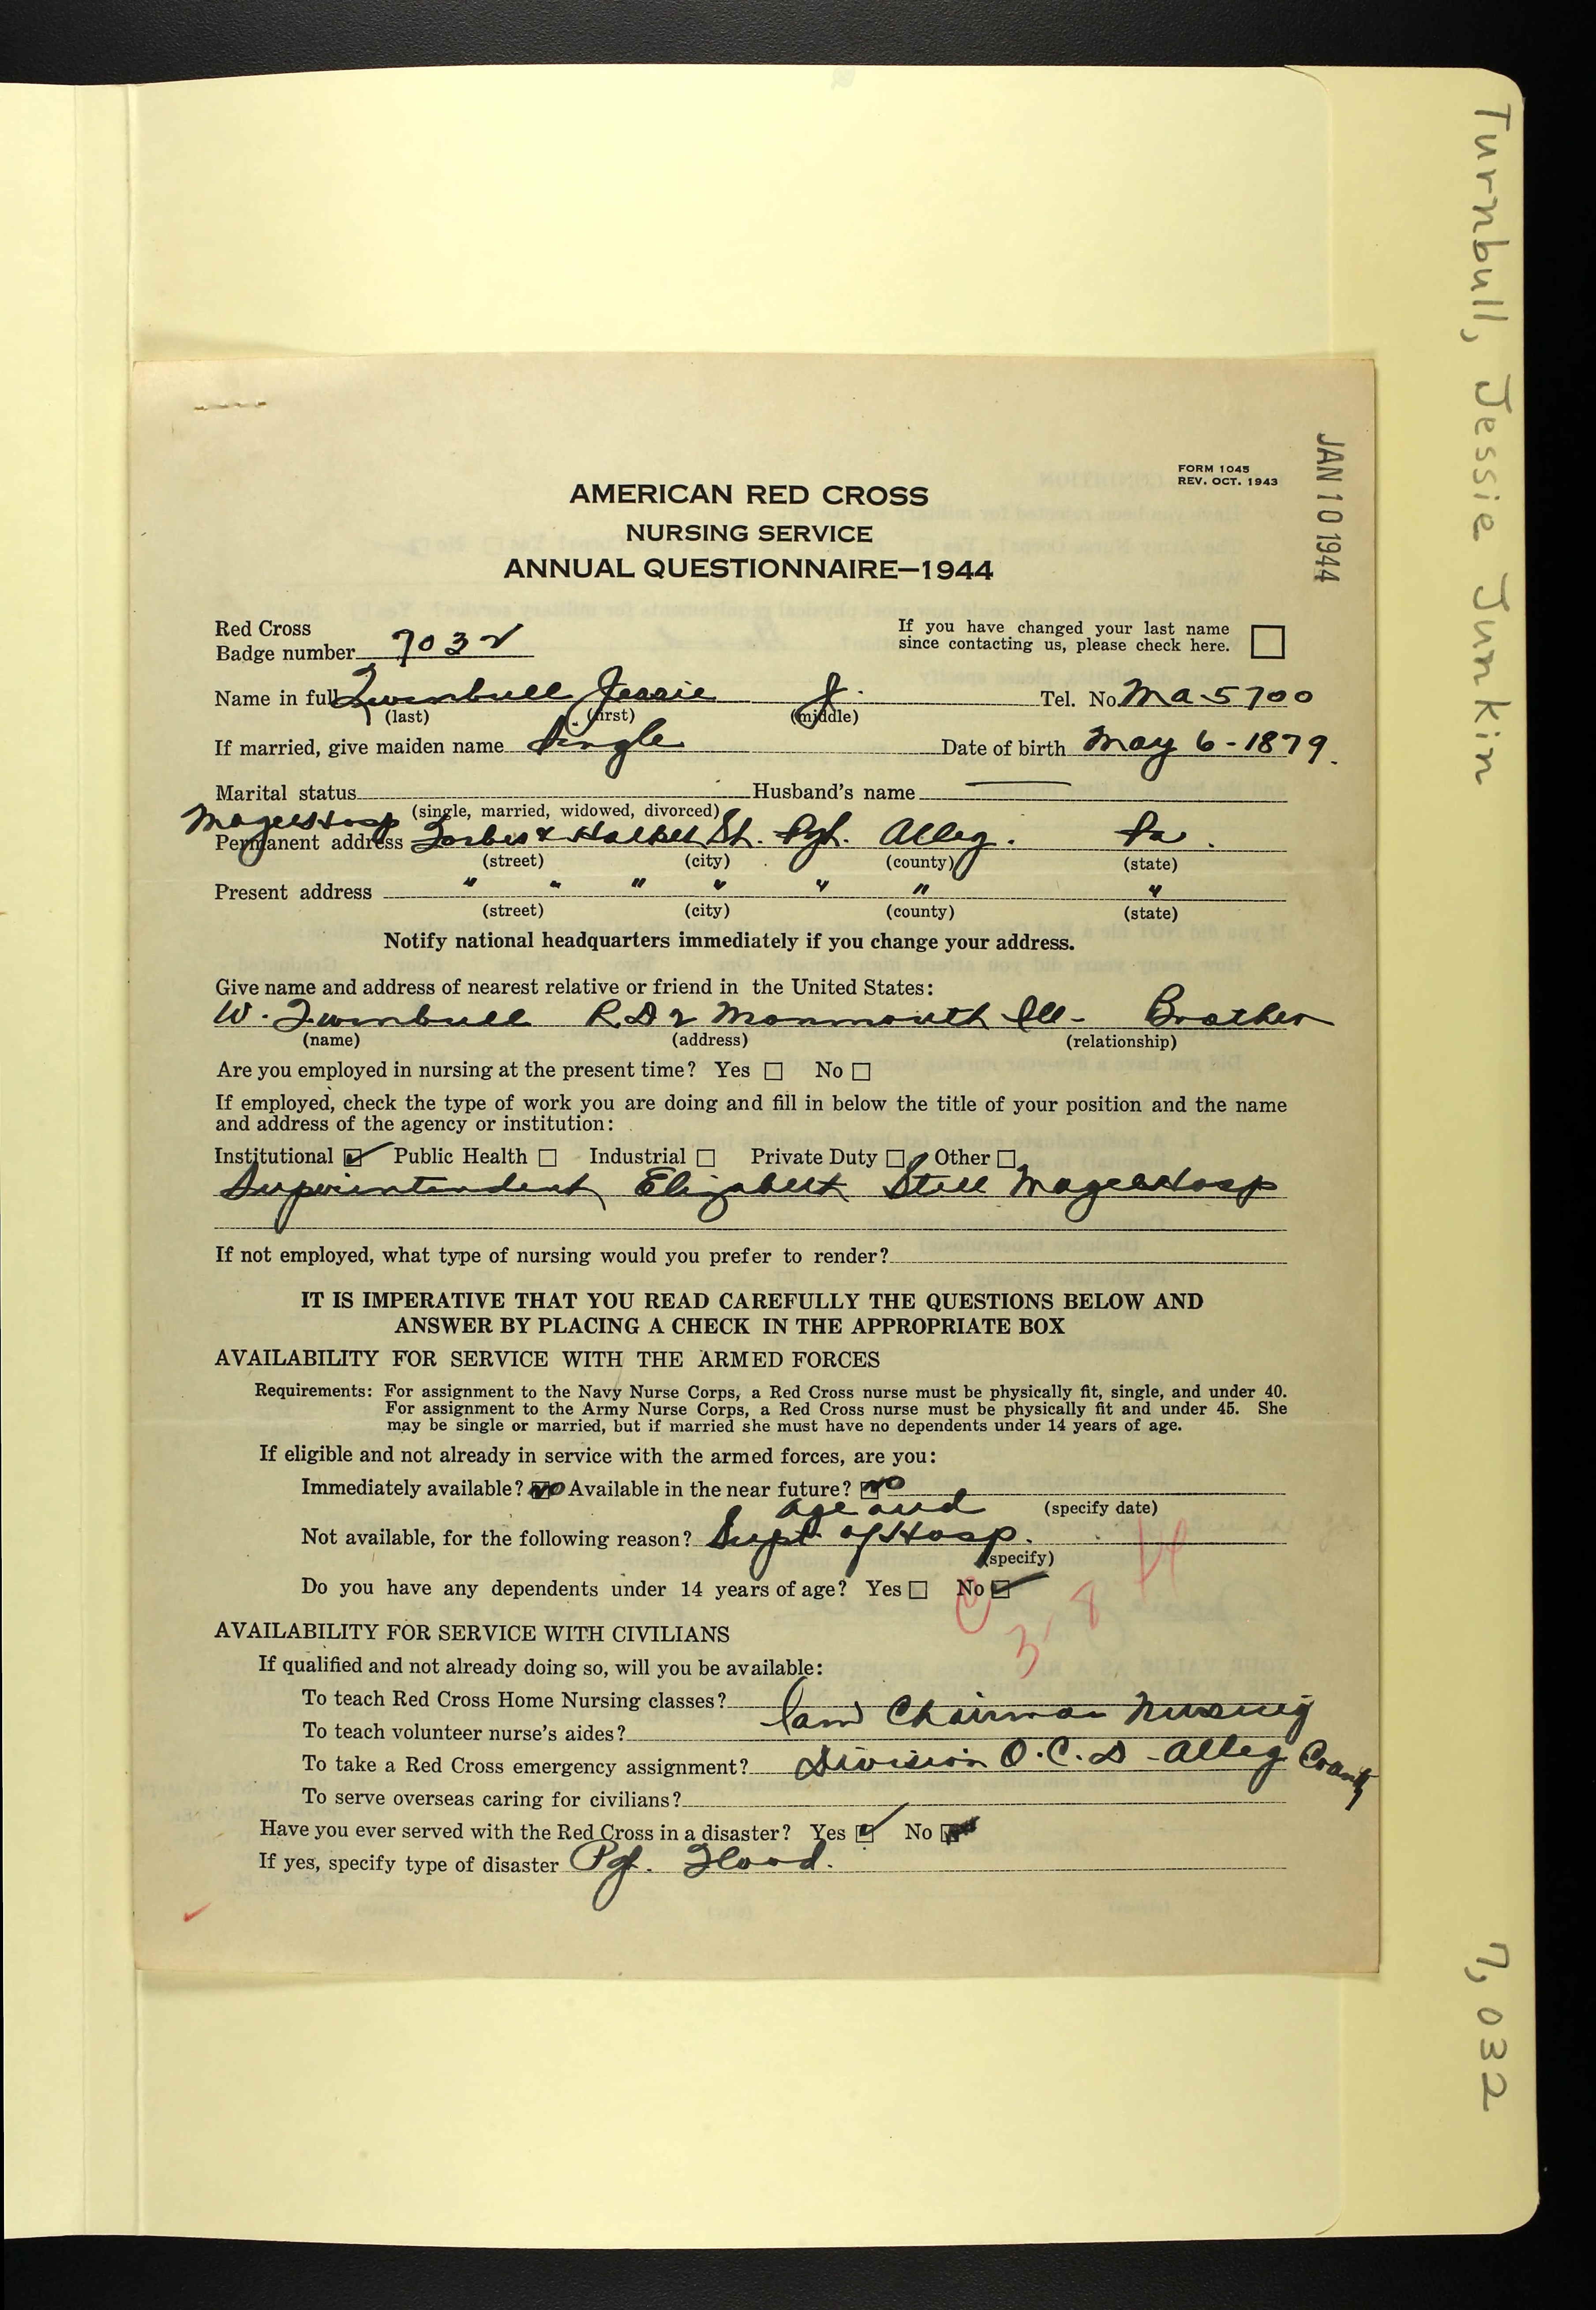 Turnbull, Jessie Junkin
7,032
JAN 10 1944
FORM 1045
REV. OCT. 1943
AMERICAN RED CROSS
NURSING SERVICE
ANNUAL QUESTIONNAIRE—1944
Red Cross
Badge number 7032
If you have changed your last name
since contacting us, please check here.
Name in full Turnbull Jessie J. Tel. No. Ma-5700
(last) (first) (middle)
If married, give maiden name Single Date of birth May 6-1879.
Marital status Husband's name
(single, married, widowed, divorced)
Magee Hosp
Permanent address Forbes & Halket St. Pgh. Alleg. Pa.
(street) (city) (county) (state)
Present address " " " " " " "
(street) (city) (county) (state)
Notify national headquarters immediately if you change your address.
Give name and address of nearest relative or friend in the United States:
W. Turnbull R D 2 Monmouth Ill- Brother
(name) (address) (relationship)
Are you employed in nursing at the present time? Yes No
If employed, check the type of work you are doing and fill in below the title of your position and the name
and address of the agency or institution:
Institutional Public Health Industrial Private Duty Other
Superintendent, Elizabeth Steel Magee Hosp
If not employed, what type of nursing would you prefer to render?
IT IS IMPERATIVE THAT YOU READ CAREFULLY THE QUESTIONS BELOW AND
ANSWER BY PLACING A CHECK IN THE APPROPRIATE BOX
AVAILABILITY FOR SERVICE WITH THE ARMED FORCES
Requirements: For assignment to the Navy Nurse Corps, a Red Cross nurse must be physically fit, single, and under 40.
For assignment to the Army Nurse Corps, a Red Cross nurse must be physically fit and under 45. She
may be single or married, but if married she must have no dependents under 14 years of age.
If eligible and not already in service with the armed forces, are you:
Immediately available? No Available in the near future? No
age and (specify date)
Not available, for the following reason? Supt. of Hosp.
(specify)
Do you have any dependents under 14 years of age? Yes No
3-8
AVAILABILITY FOR SERVICE WITH CIVILIANS
If qualified and not already doing so, will you be available:
To teach Red Cross Home Nursing classes?
I am Chairman Nursing
To teach volunteer nurse's aides?
To take a Red Cross emergency assignment? Division O.C.D - Alleg County
To serve overseas caring for civilians?
Have you ever served with the Red Cross in a disaster? Yes No
If yes, specify type of disaster Pgh. Flood.